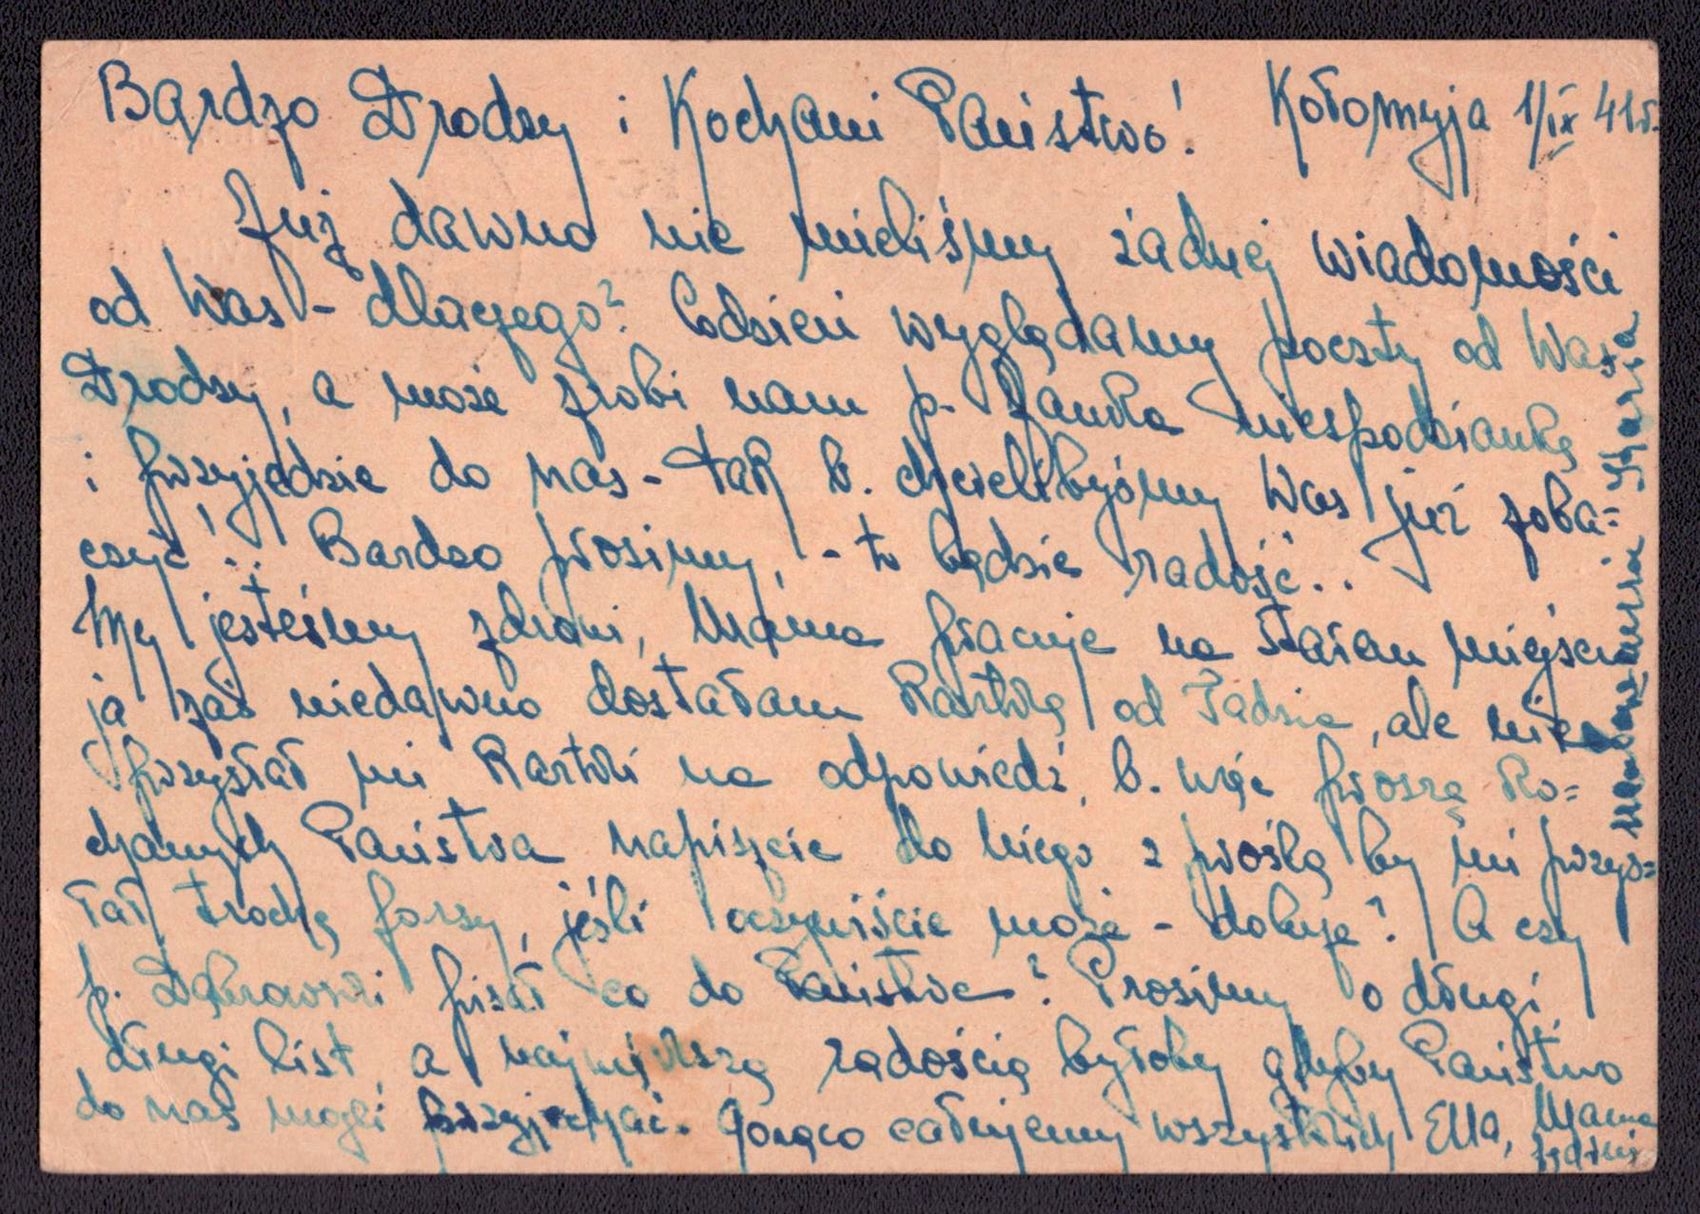 Bardzo Drodzy i Kochani Państwo! Kołomyja 1/IX 41r.
Już dawno nie mieliśmy żadnej wiadomości
od Was - dlaczego? Codzień wyglądamy poczty od Was
Drodzy, a może zrobi nam p. Janka niespodziankę
i przyjedzie do nas - tak b. chcielibyśmy Was już zoba=
czyć!.. Bardzo prosimy, - to będzie radość..
My jesteśmy zdrowi, Mama pracuje na starem miejscu
ja zaś niedawno dostałam kartkę od Tadzia, ale nie
przysłał mi kartki na odpowiedź, b. więc proszę Ko=
chanych Państwa napiszcie do niego z prośbą by mi przys=
łał trochę forsy, jeśli oczywiście może - dobrze? A czy
p. Dąbrowski pisał co do Państwa? Prosimy o długi
długi list, a największą radością byłoby gdyby Państwo
do nas mogli przyjechać. Gorąco całujemy wszystkich Ella, Mama